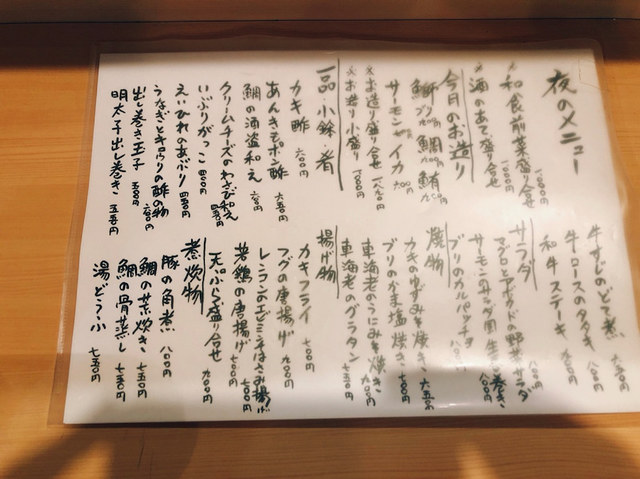 夜のメニュー
和食前菜盛り合せ 一、〇〇〇円
酒のあて盛り合せ
今月のお造り
鰤 ブリ 鯛 鮪
サーモン イカ
お造り盛り合せ
お造り小盛り
一品・小鉢・肴
カキ酢 六〇〇円
あんきもポン酢 六五〇円
鯛の酒盗和え
クリームチーズのわさび和え
いぶりがっこ 四〇〇円
えいひれのあぶり 四五〇円
うなぎとキュウリの酢の物
出し巻き玉子 五〇〇円
明太子出し巻き 五五〇円
牛すじのどて煮
牛ロースのタタキ
和牛ステーキ
サラダ
マグロとアボカドの野菜サラダ
サーモン 生春巻き
ブリのカルパッチョ
焼物
カキのゆずみそ焼き 六五〇円
ブリのかま塩焼き
車海老のうにみそ焼き
車海老のグラタン 七五〇円
揚げ物
カキフライ 七〇〇円
フグの唐揚げ 九〇〇円
レンコンのエビミンチはさみ揚げ 七〇〇円
若鶏の唐揚げ 七〇〇円
天ぷら盛り合せ 九〇〇円
煮炊物
豚の角煮 八〇〇円
鯛の荒炊き 七五〇円
鯛の骨蒸し 七五〇円
湯どうふ 七五〇円